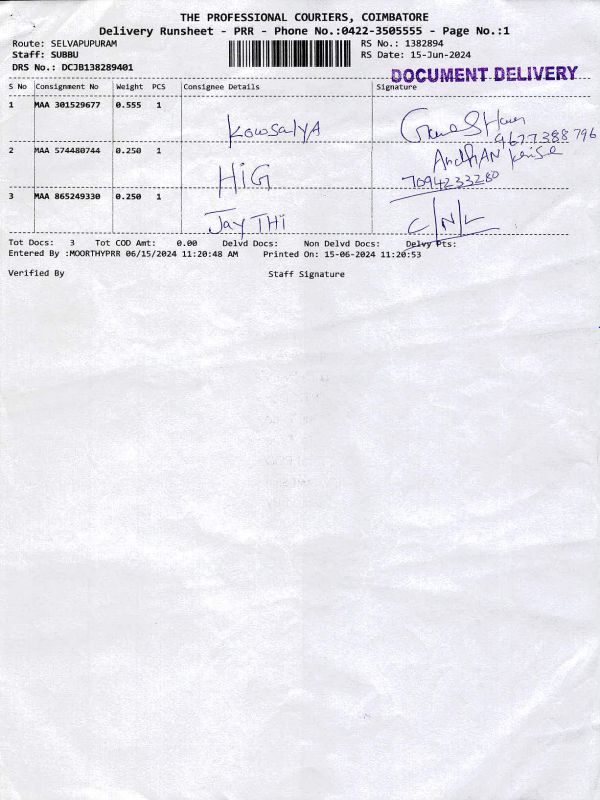 THE PROFESSIONAL COURIERS, COIMBATORE
Delivery Runsheet - PRR - Phone No.:0422-3505555 - Page No.:1
Route: SELVAPUPURAM RS No.: 1382894
Staff: SUBBU RS Date: 15-Jun-2024
DRS No.: DCJB138289401
DOCUMENT DELIVERY
S No Consignment No Weight PCS Consignee Details Signature
1 MAA 301529677 0.555 1
KowsalyA
9677388796
2 MAA 574480744 0.250 1
HiG
7094233280
3 MAA 865249330 0.250 1
JayTHi C/N/L
Tot Docs: 3 Tot COD Amt: 0.00 Delvd Docs: Non Delvd Docs: Delvy Pts:
Entered By :MOORTHYPRR 06/15/2024 11:20:48 AM Printed On: 15-06-2024 11:20:53
Verified By Staff Signature